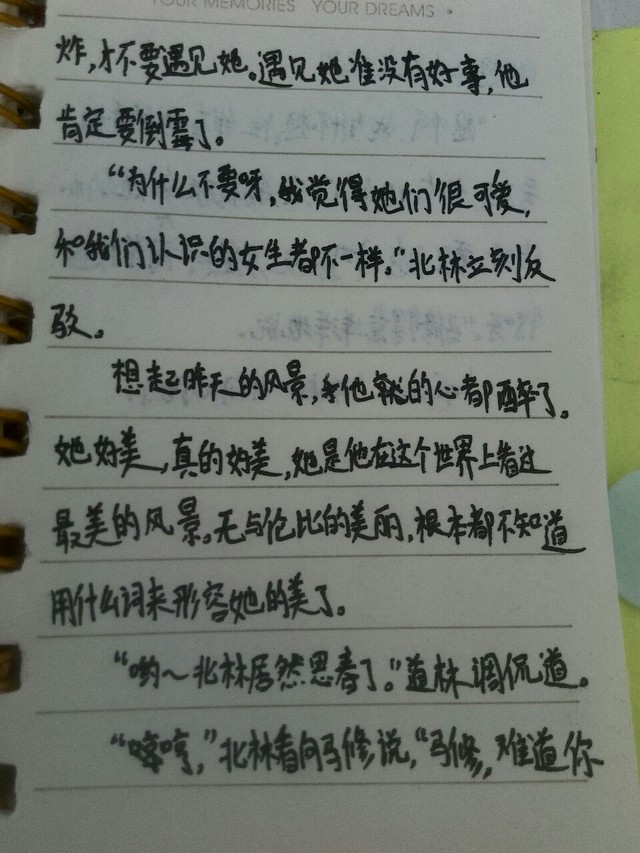 YOUR MEMORIES YOUR DREAMS •
炸,才不要遇见她。遇见她准没有好事,他
肯定要倒霉了。
“为什么不要呀,我觉得她们很可爱,
和我们认识的女生都不一样。”北林立刻反
驳。
想起昨天的风景,他的心都醉了。
她好美,真的好美,她是他在这个世界上看过
最美的风景。无与伦比的美丽,根本都不知道
用什么词来形容她的美了。
“哟~北林居然思春了。”道林调侃道。
“哼哼,”北林看向马修说,“马修,难道你